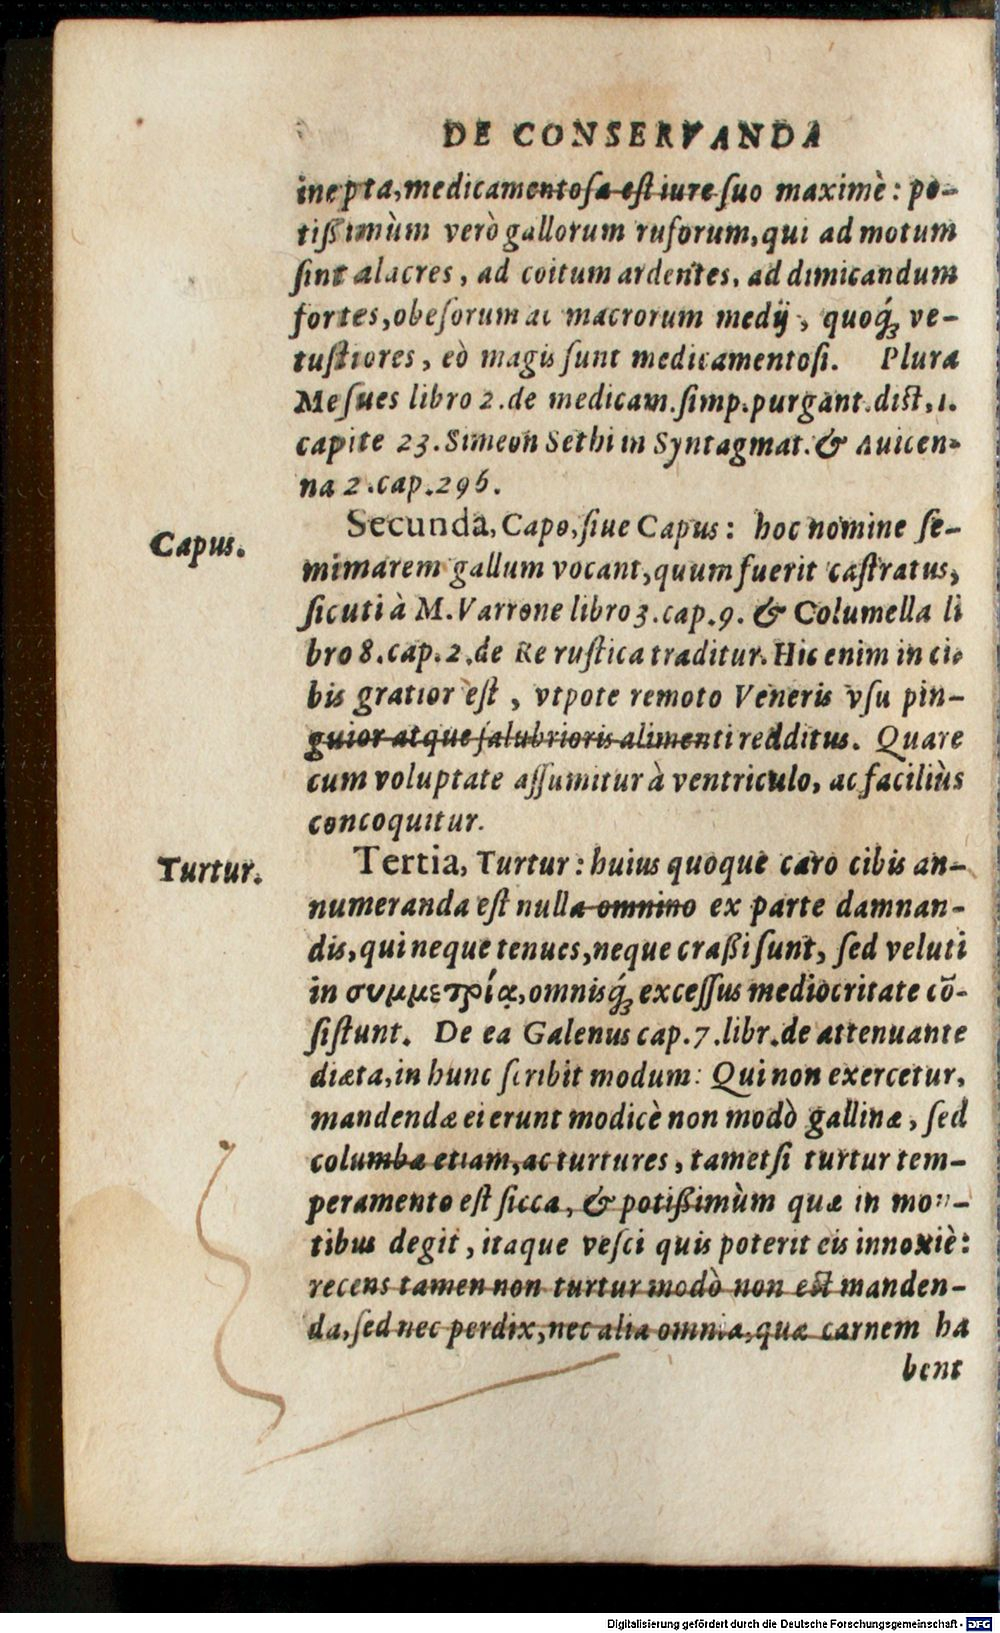 DE CONSERVANDA
inepta, medicamentosa est iure suo maximè: po-
tißimùm verò gallorum ruforum, qui ad motum
sint alacres, ad coitum ardentes, ad dimicandum
fortes, obesorum ac macrorum medij, quoq́ꝫ ve-
tustiores, eò magis sunt medicamentosi. Plura
Mesues libro 2. de medicam. simp. purgant. dist. 1.
capite 23. Simeon Sethi in Syntagmat. & Auicen-
na 2. cap. 296.
Capus.
Secunda, Capo, siue Capus: hoc nomine se-
mimarem gallum vocant, quum fuerit castratus,
sicuti à M. Varrone libro 3. cap. 9. & Columella li
bro 8. cap. 2. de Re rustica traditur. Hic enim in ci-
bis gratior est, vtpote remoto Veneris vsu pin-
guior atque salubrioris alimenti redditus. Quare
cum voluptate assumitur à ventriculo, ac faciliùs
concoquitur.
Turtur.
Tertia, Turtur: huius quoque caro cibis an-
numeranda est nulla omnino ex parte damnan-
dis, qui neque tenues, neque craßi sunt, sed veluti
in συμμετρίᾳ, omnisq́ꝫ excessus mediocritate cō-
sistunt. De ea Galenus cap. 7. libr. de attenuante
diæta, in hunc scribit modum: Qui non exercetur,
mandendæ ei erunt modicè non modò gallinæ, sed
columbæ etiam, ac turtures, tametsi turtur tem-
peramento est sicca, & potißimùm quæ in mon-
tibus degit, itaque vesci quis poterit eis innoxiè:
recens tamen non turtur modò non est manden-
da, sed nec perdix, nec alia omnia, quæ carnem ha
bent
Digitalisierung gefördert durch die Deutsche Forschungsgemeinschaft - DFG